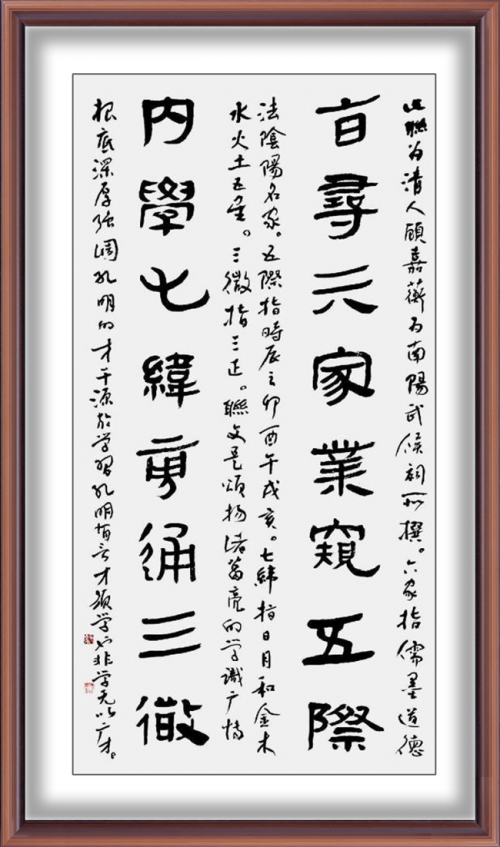 此聯为清人顧嘉蘅为南陽武侯祠所撰。六家指儒墨道德
旨尋六家業窺五際
法陰陽名家。五際指時辰之卯酉午戌亥。七緯指日月和金木
水火土五星。三微指三正。聯文是頌揚诸葛亮的学識广博
内學七緯旁通三微
根底深厚强调孔明的才干源於学習孔明有言才须学也非学无以广才。